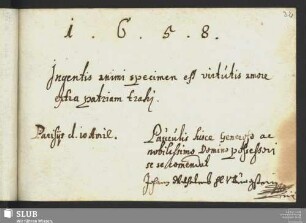 26
1. 6. 5. 8.
Ingentis animi specimen est virtutis amore
extra patriam trahi.
Parisijs d. 10 Avril.
Pauculis hisce Generoso ac
nobilissimo Domino possessori
se se comendat
SLUB